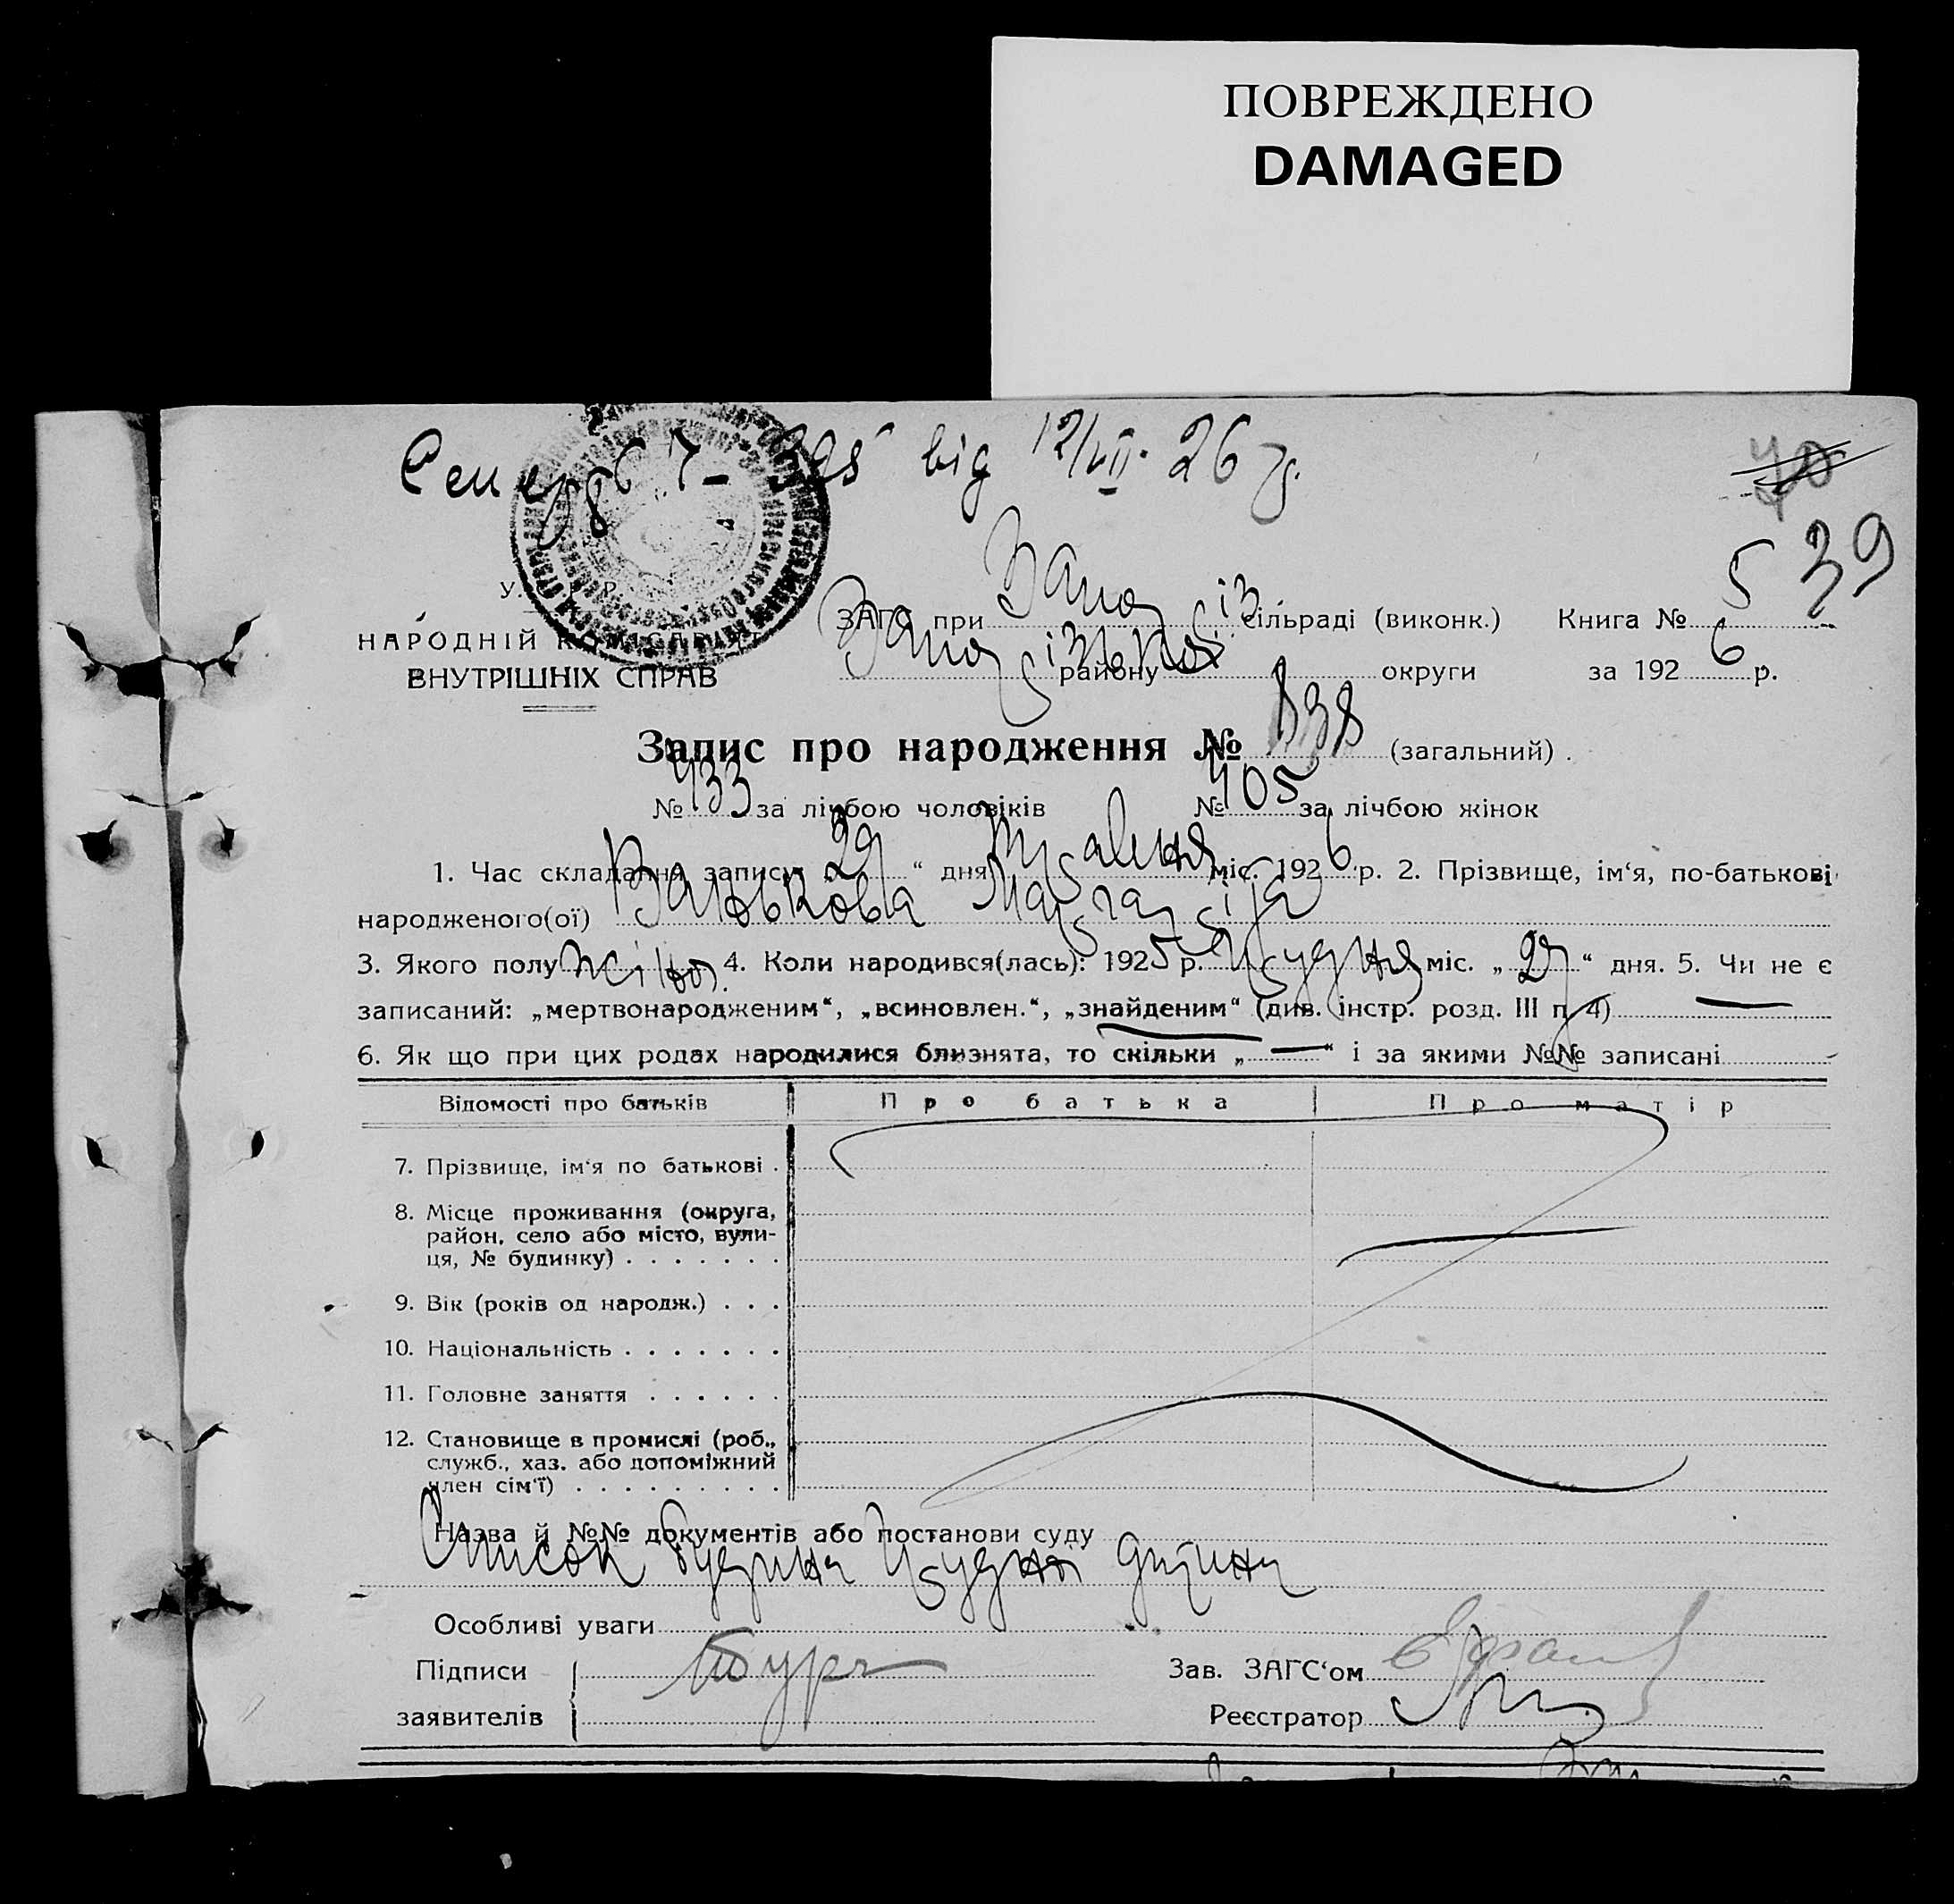 ПОВРЕЖДЕНО
DAMAGED
від 12/VII. 26 р.
70
39
У. Р.
НАРОДНІЙ КОМІСАРІЯТ
ВНУТРІШНІХ СПРАВ
ЗАГС при Запоріз. сільраді (виконк.) Книга № 5
району округи за 1926 р.
Запис про народження № 838 (загальний).
№ 433 за лічбою чоловіків № 405 за лічбою жінок
1. Час складання запису „29“ дня Травня міс. 1926 р. 2. Прізвище, ім‘я, по-батькові
народженого(ої) Панькова Маргарія
3. Якого полу жіноч. 4. Коли народився(лась): 1925 р. Грудня міс. „27“ дня. 5. Чи не є
записаний: „мертвонародженим“, „всиновлен.“, „знайденим“ (див. інстр. розд. III п. 4) —
6. Як що при цих родах народилися близнята, то скільки „—“ і за якими №№ записані
Відомості про батьків Про батька Про матір
7. Прізвище, ім‘я по батькові .
8. Місце проживання (округа,
район, село або місто, вули-
ця, № будинку) . . . . . . .
9. Вік (років од народж.) . . .
10. Національність . . . . . . .
11. Головне заняття . . . . . .
12. Становище в промислі (роб.,
служб., хаз. або допоміжний
член сім‘ї) . . . . . . . . .
Назва й №№ документів або постанови суду
Список будинка грудної дитини
Особливі уваги
Підписи Зав. ЗАГС‘ом
заявителів Реєстратор